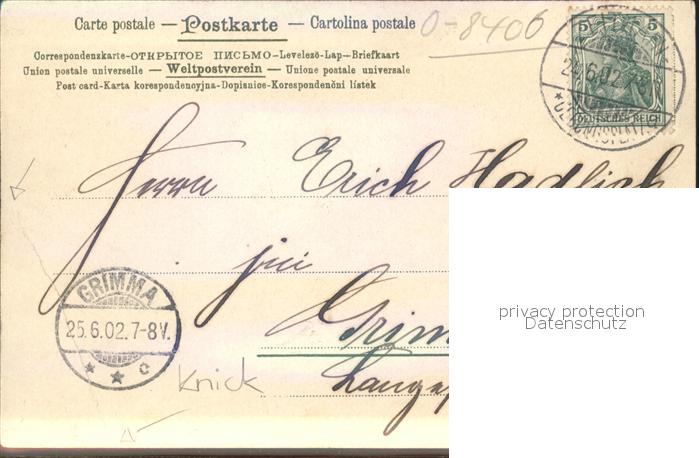 Carte postale — Postkarte — Cartolina postale
0-8406
Correspondenzkarte-ОТКРЫТОЕ ПИСЬМО-Levelezö-Lap-Briefkaart
Union postale universelle — Weltpostverein — Unione postale universale
Post card-Karta korespondencyjna-Dopisnice-Korespondenčni lístek
5 5
DEUTSCHES REICH
Herrn Erich Hadlich
in
privacy protection
Datenschutz
GRIMMA
25.6.02.7-8V.
* * c
Grim
Knick
Lange